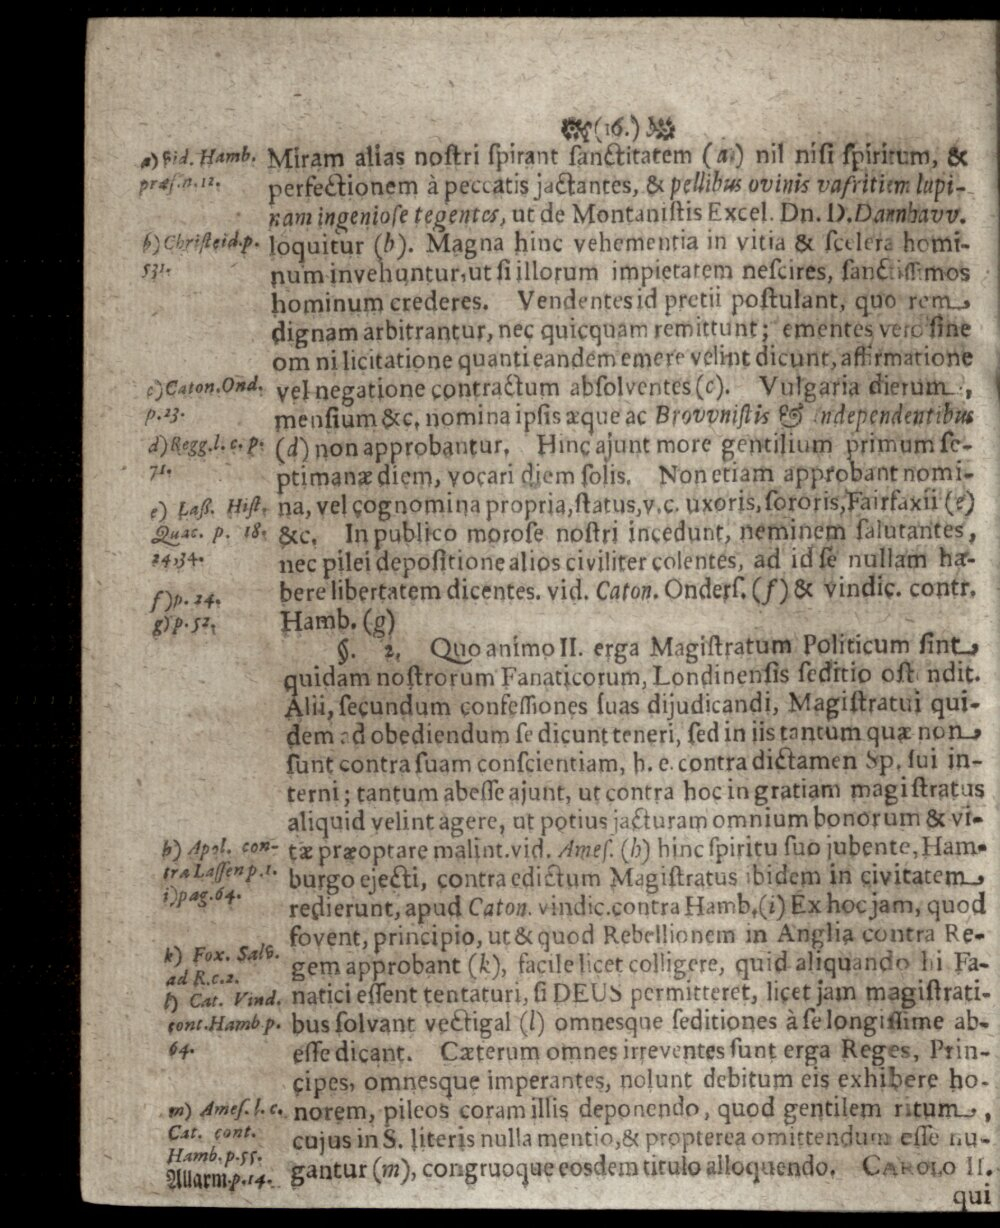 (16.)
a) Vid. Hamb.
præf.n.12.
Miram alias nostri spirant sanctitatem (a) nil nisi spiritum, &
perfectionem à peccatis jactantes, & pellibus ovinis vafritiem lupi-
nam ingeniose tegentes, ut de Montanistis Excel. Dn. D. Dannhavv.
b) Christeid.p.
531.
loquitur (b). Magna hinc vehementia in vitia & scelera homi-
num invehuntur, ut si illorum impietatem nescires, sanctissimos
hominum crederes. Vendentes id pretii postulant, quo rem
dignam arbitrantur, nec quicquam remittunt; ementes vero sine
omni licitatione quanti eandem emere velint dicunt, affirmatione
c) Caton.Ond.
p.23.
vel negatione contractum absolventes (c). Vulgaria dierum,
mensium &c. nomina ipsis æque ac Brovvnistis & Independentibus
d) Regg.l.c.p.
71.
(d) non approbantur. Hinc ajunt more gentilium primum se-
ptimanæ diem, vocari diem solis. Non etiam approbant nomi-
e) Lass. Hist.
Quac. p. 18.
24.34.
na, vel cognomina propria, status, v.c. uxoris, sororis, Fairfaxii (e)
&c. In publico morose nostri incedunt, neminem salutantes,
nec pilei depositione alios civiliter colentes, ad id se nullam ha-
f) p. 24.
g) p. 52.
bere libertatem dicentes. vid. Caton. Onders. (f) & vindic. contr.
Hamb. (g)
§. 2. Quo animo II. erga Magistratum Politicum sint
quidam nostrorum Fanaticorum, Londinensis seditio ostendit.
Alii, secundum confessiones suas dijudicandi, Magistratui qui-
dem ad obediendum se dicunt teneri, sed in iis tantum quæ non
sunt contra suam conscientiam, h. e. contra dictamen Sp. sui in-
terni; tantum abesse ajunt, ut contra hoc in gratiam magistratus
aliquid velint agere, ut potius jacturam omnium bonorum & vi-
h) Apol. con-
tra Lassen p.1.
i) pag.64.
tæ præoptare malint. vid. Ames. (h) hinc spiritu suo jubente, Ham-
burgo ejecti, contra edictum Magistratus ibidem in civitatem
redierunt, apud Caton. vindic. contra Hamb. (i) Ex hoc jam, quod
fovent, principio, ut & quod Rebellionem in Anglia contra Re-
k) Fox. Salv.
ad R.c.2.
gem approbant (k), facile licet colligere, quid aliquando hi Fa-
l) Cat. Vind.
cont.Hamb p.
64.
natici essent tentaturi, si DEUS permitteret, licet jam magistrati-
bus solvant vectigal (l) omnesque seditiones à se longissime ab-
esse dicant. Cæterum omnes irreventes sunt erga Reges, Prin-
cipes, omnesque imperantes, nolunt debitum eis exhibere ho-
m) Ames. l. c.
Cat. cont.
Hamb.p.55.
Allarm.p.14.
norem, pileos coram illis deponendo, quod gentilem ritum,
cujus in S. literis nulla mentio, & propterea omittendum esse nu-
gantur (m), congruoque eosdem titulo alloquendo. CAROLO II.
qui